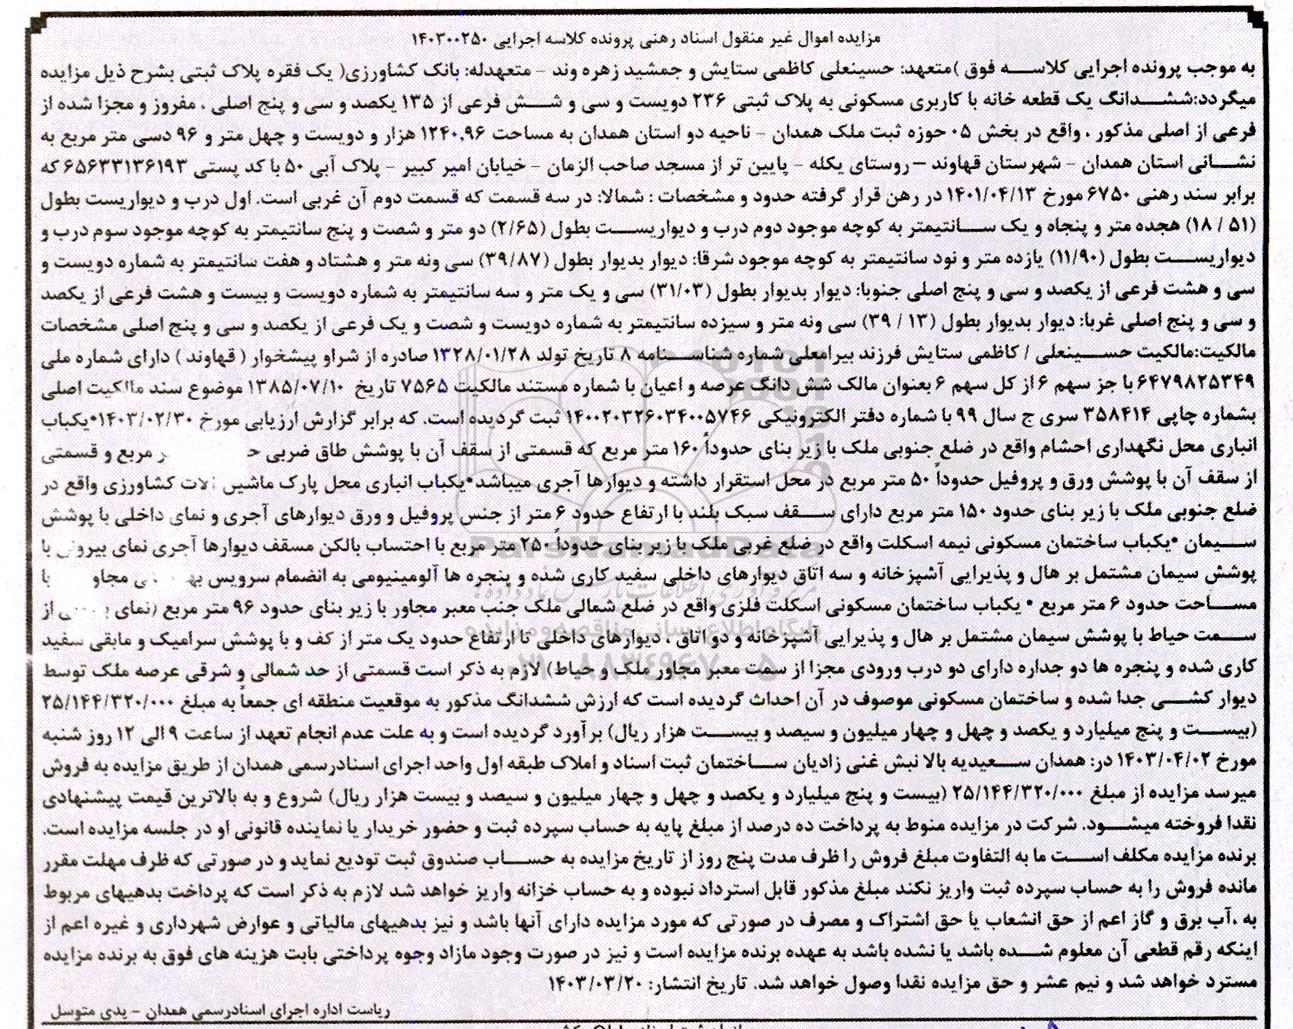 مزایده اموال غیر منقول اسناد رهنی پرونده کلاسه اجرایی ۱۴۰۳۰۰۲۵۰
به موجب پرونده اجرایی کلاسه فوق )متعهد: حسینعلی کاظمی ستایش و جمشید زهره وند – متعهدله: بانک کشاورزی( یک فقره پلاک ثبتی بشرح ذیل مزایده
میگردد:ششدانگ یک قطعه خانه با کاربری مسکونی به پلاک ثبتی ۲۳۶ دویست و سی و شش فرعی از ۱۳۵ یکصد و سی و پنج اصلی ، مفروز و مجزا شده از
فرعی از اصلی مذکور ، واقع در بخش ۰۵ حوزه ثبت ملک همدان – ناحیه دو استان همدان به مساحت ۱۲۴۰.۹۶ هزار و دویست و چهل متر و ۹۶ دسی متر مربع به
نشانی استان همدان – شهرستان قهاوند –روستای یکله – پایین تر از مسجد صاحب الزمان – خیابان امیر کبیر – پلاک آبی ۵۰ با کد پستی ۶۵۶۳۳۱۳۶۱۹۳ که
برابر سند رهنی ۶۷۵۰ مورخ ۱۴۰۱/۰۴/۱۳ در رهن قرار گرفته حدود و مشخصات : شمالا: در سه قسمت که قسمت دوم آن غربی است. اول درب و دیواریست بطول
(۵۱ / ۱۸) هجده متر و پنجاه و یک سانتیمتر به کوچه موجود دوم درب و دیواریست بطول (۲/۶۵) دو متر و شصت و پنج سانتیمتر به کوچه موجود سوم درب و
دیواریست بطول (۱۱/۹۰) یازده متر و نود سانتیمتر به کوچه موجود شرقا: دیوار بدیوار بطول (۳۹/۸۷) سی ونه متر و هشتاد و هفت سانتیمتر به شماره دویست و
سی و هشت فرعی از یکصد و سی و پنج اصلی جنوبا: دیوار بدیوار بطول (۳۱/۰۳) سی و یک متر و سه سانتیمتر به شماره دویست و بیست و هشت فرعی از یکصد
و سی و پنج اصلی غربا: دیوار بدیوار بطول (۱۳ / ۳۹) سی ونه متر و سیزده سانتیمتر به شماره دویست و شصت و یک فرعی از یکصد و سی و پنج اصلی مشخصات
مالکیت:مالکیت حسینعلی / کاظمی ستایش فرزند بیرامعلی شماره شناسنامه ۸ تاریخ تولد ۱۳۲۸/۰۱/۲۸ صادره از شراو پیشخوار ( قهاوند ) دارای شماره ملی
۶۴۷۹۸۲۵۳۴۹ با جز سهم ۶ از کل سهم ۶ بعنوان مالک شش دانگ عرصه و اعیان با شماره مستند مالکیت ۷۵۶۵ تاریخ ۱۳۸۵/۰۷/۱۰ موضوع سند مالکیت اصلی
بشماره چاپی ۳۵۸۴۱۴ سری ج سال ۹۹ با شماره دفتر الکترونیکی ۱۴۰۰۲۰۳۲۶۰۳۴۰۰۵۷۴۶ ثبت گردیده است. که برابر گزارش ارزیابی مورخ ۱۴۰۳/۰۲/۳۰*یکباب
انباری محل نگهداری احشام واقع در ضلع جنوبی ملک با زیر بنای حدوداً ۱۶۰ متر مربع که قسمتی از سقف آن با پوشش طاق ضربی مربع و قسمتی
از سقف آن با پوشش ورق و پروفیل حدوداً ۵۰ متر مربع در محل استقرار داشته و دیوارها آجری میباشد*یکباب انباری محل پارک ماشین آلات کشاورزی واقع در
ضلع جنوبی ملک با زیر بنای حدود ۱۵۰ متر مربع دارای سقف سبک بلند با ارتفاع حدود ۶ متر از جنس پروفیل و ورق دیوارهای آجری و نمای داخلی با پوشش
سیمان *یکباب ساختمان مسکونی نیمه اسکلت واقع در ضلع غربی ملک با زیر بنای حدوداً ۲۵۰ متر مربع با احتساب بالکن مسقف دیوارها آجری نمای بیرونی با
پوشش سیمان مشتمل بر هال و پذیرایی آشپزخانه و سه اتاق دیوارهای داخلی سفید کاری شده و پنجره ها آلومینیومی به انضمام سرویس با
مساحت حدود ۶ متر مربع * یکباب ساختمان مسکونی اسکلت فلزی واقع در ضلع شمالی ملک جنب معبر مجاور با زیر بنای حدود ۹۶ متر مربع (نمای از
سمت حیاط با پوشش سیمان مشتمل بر هال و پذیرایی آشپزخانه و دو اتاق ، دیوارهای داخلی تا ارتفاع حدود یک متر از کف و با پوشش سرامیک و مابقی سفید
کاری شده و پنجره ها دو جداره دارای دو درب ورودی مجزا از سمت معبر مجاور ملک و حیاط) لازم به ذکر است قسمتی از حد شمالی و شرقی عرصه ملک توسط
دیوار کشی جدا شده و ساختمان مسکونی موصوف در آن احداث گردیده است که ارزش ششدانگ مذکور به موقعیت منطقه ای جمعاً به مبلغ ۲۵/۱۴۴/۳۲۰/۰۰۰
(بیست و پنج میلیارد و یکصد و چهل و چهار میلیون و سیصد و بیست هزار ریال) برآورد گردیده است و به علت عدم انجام تعهد از ساعت ۹ الی ۱۲ روز شنبه
مورخ ۱۴۰۳/۰۴/۰۲ در: همدان سعیدیه بالا نبش غنی زادیان ساختمان ثبت اسناد و املاک طبقه اول واحد اجرای اسنادرسمی همدان از طریق مزایده به فروش
میرسد مزایده از مبلغ ۲۵/۱۴۴/۳۲۰/۰۰۰ (بیست و پنج میلیارد و یکصد و چهل و چهار میلیون و سیصد و بیست هزار ریال) شروع و به بالاترین قیمت پیشنهادی
نقدا فروخته میشود. شرکت در مزایده منوط به پرداخت ده درصد از مبلغ پایه به حساب سپرده ثبت و حضور خریدار یا نماینده قانونی او در جلسه مزایده است.
برنده مزایده مکلف است ما به التفاوت مبلغ فروش را ظرف مدت پنج روز از تاریخ مزایده به حساب صندوق ثبت تودیع نماید و در صورتی که ظرف مهلت مقرر
مانده فروش را به حساب سپرده ثبت واریز نکند مبلغ مذکور قابل استرداد نبوده و به حساب خزانه واریز خواهد شد لازم به ذکر است که پرداخت بدهیهای مربوط
به ،آب برق و گاز اعم از حق انشعاب یا حق اشتراک و مصرف در صورتی که مورد مزایده دارای آنها باشد و نیز بدهیهای مالیاتی و عوارض شهرداری و غیره اعم از
اینکه رقم قطعی آن معلوم شده باشد یا نشده باشد به عهده برنده مزایده است و نیز در صورت وجود مازاد وجوه پرداختی بابت هزینه های فوق به برنده مزایده
مسترد خواهد شد و نیم عشر و حق مزایده نقدا وصول خواهد شد. تاریخ انتشار: ۱۴۰۳/۰۳/۲۰
ریاست اداره اجرای اسنادرسمی همدان – یدی متوسل